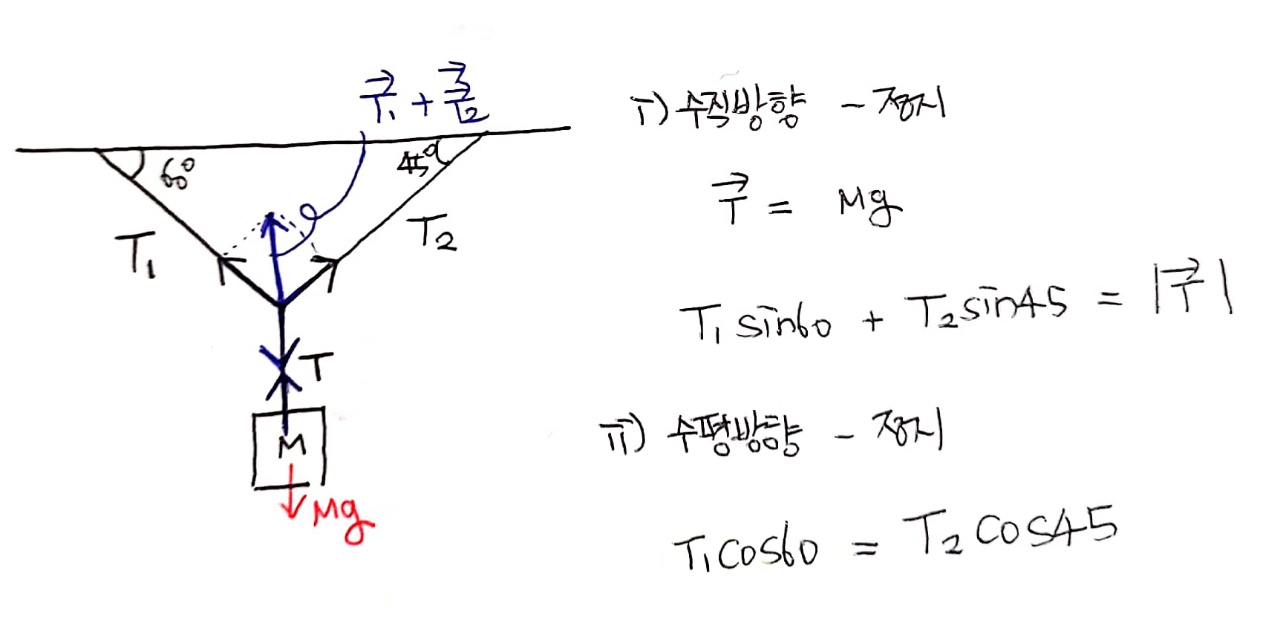 T₁ + T₂
60°
45°
T₁
T₂
T
M
Mg
i) 수직방향 - 정지
T = Mg
T₁ sin60 + T₂ sin45 = |T|
ii) 수평방향 - 정지
T₁ cos60 = T₂ cos45